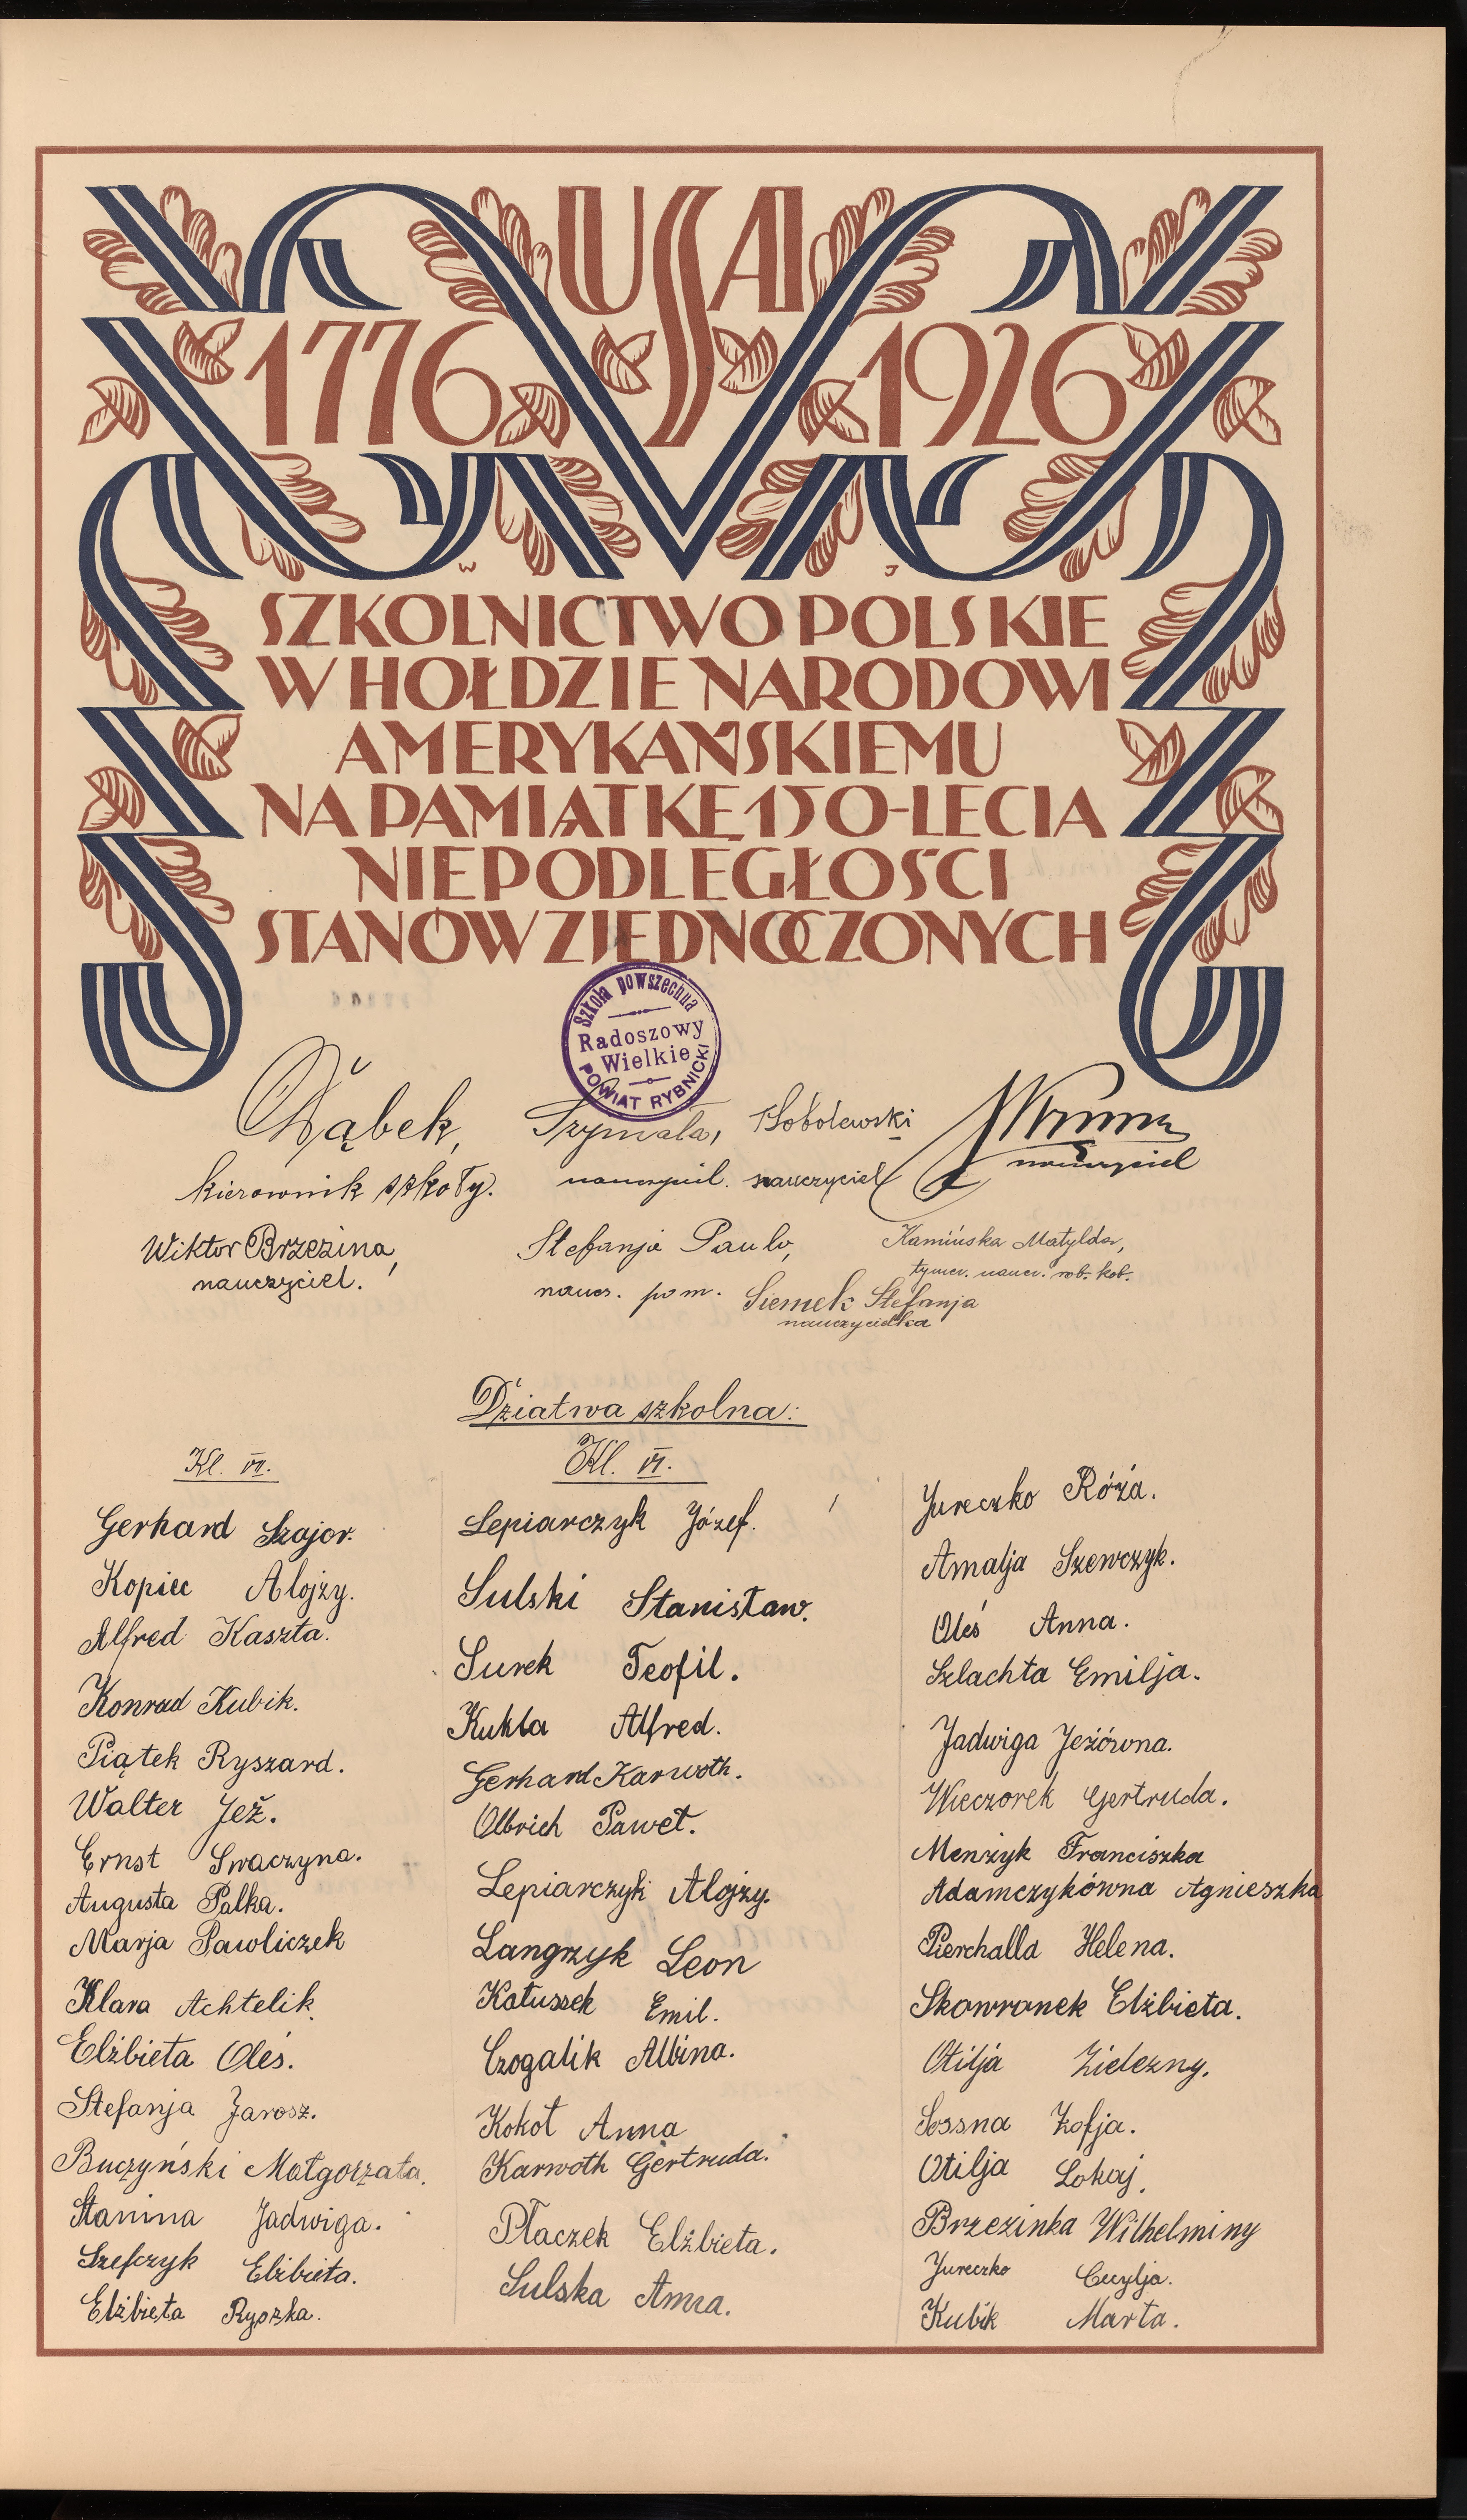 USA
1776 1926
W J
SZKOLNICTWO POLSKIE
W HOŁDZIE NARODOWI
AMERYKAŃSKIEMU
NA PAMIĄTKĘ 150-LECIA
NIEPODLEGŁOŚCI
STANÓW ZJEDNOCZONYCH
Szkoła powszechna
Radoszowy
Wielkie
POWIAT RYBNICKI
Dąbek,
kierownik szkoły.
Szymała,
nauczyciel.
Sobolewski
nauczyciel
nauczyciel
Wiktor Brzezina,
nauczyciel.
Stefanja Paulo,
naucz. pom.
Kamińska Matylda,
tymcz. naucz. rob. kob.
Siemek Stefanja
nauczycielka
Dziatwa szkolna:
Kl. VII.
Gerhard Szajor.
Kopiec Alojzy.
Alfred Kaszta.
Konrad Kubik.
Piątek Ryszard.
Walter Jeż.
Ernst Swaczyna.
Augusta Palka.
Marja Pawliczek
Klara Achtelik.
Elżbieta Oleś.
Stefanja Jarosz.
Buczyński Małgorzata.
Stanina Jadwiga.
Szefczyk Elżbieta.
Elżbieta Ryszka.
Kl. VI.
Lepiarczyk Józef.
Sulski Stanisław.
Surek Teofil.
Kukla Alfred.
Gerhard Karwoth.
Olbrich Paweł.
Lepiarczyk Alojzy.
Langrzyk Leon
Katussek Emil.
Czogalik Albina.
Kokot Anna
Karwoth Gertruda.
Płaczek Elżbieta.
Sulska Anna.
Jureczko Róża.
Amalja Szewczyk.
Oleś Anna.
Szlachta Emilja.
Jadwiga Jeżówna.
Wieczorek Gertruda.
Menżyk Franciszka
Adamczykówna Agnieszka
Pierchalla Helena.
Skowronek Elżbieta.
Otilja Zielezny.
Sossna Zofja.
Otilja Lokaj.
Brzezinka Wilhelminy
Jureczko Cecylja.
Kubik Marta.